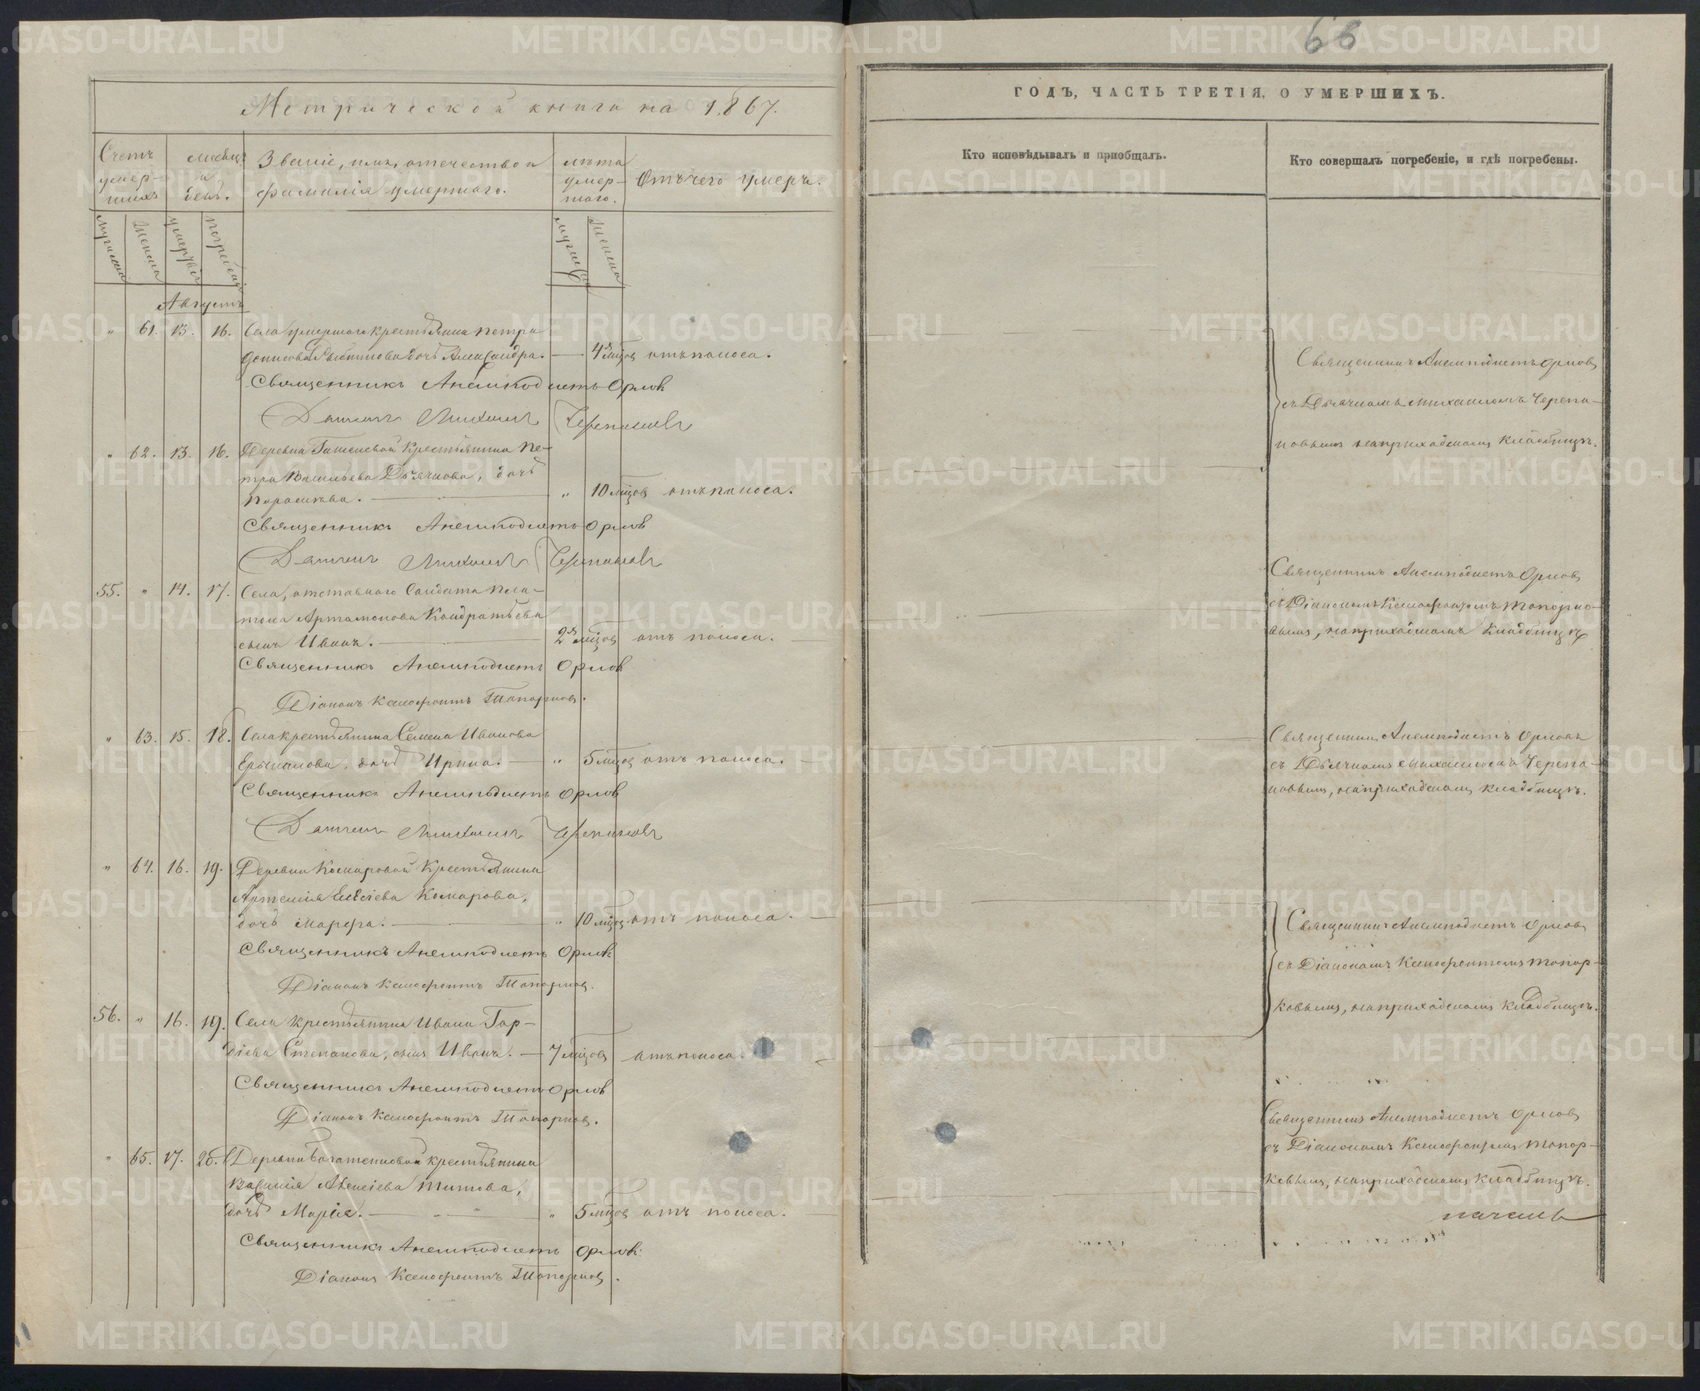 METRIKI.GASO-URAL.RU
68
Метрической книги на 1867.
ГОДЪ, ЧАСТЬ ТРЕТІЯ, О УМЕРШИХЪ.
Счетъ умер-шихъ
Месяцъ и день.
Званіе, имя, отечество и фамилія умершаго.
лѣта умер-шаго.
Отъ чего умеръ.
Кто исповѣдывалъ и пріобщалъ.
Кто совершалъ погребеніе, и гдѣ погребены.
Мужеска
Женска
умертвія
погребенія
мужеска
женска
Августъ
" 61. 13. 16. Села умершаго крестьянина Петра
Денисова дочь Александра. — 4 мѣсяц отъ поноса.
Священникъ Анемподистъ Орловъ
Дьячекъ Михаилъ Черепановъ
Священникъ Анемподистъ Орловъ
съ Дьячкомъ Михаиломъ Черепа-
новымъ, на приходскомъ кладбищѣ.
" 62. 13. 16. Деревни крестьянина Пе-
тра Васильева Дьячкова, дочь
Параскева. — " 10 мѣсяц отъ поноса.
Священникъ Анемподистъ Орловъ
Дьячекъ Михаилъ Черепановъ
55. " 14. 17. Села, отставного Солдата Пла-
тона Артамонова Кондратьева
сынъ Иванъ. — 2 мѣсяц отъ поноса.
Священникъ Анемподистъ Орловъ
Діаконъ Ксенофонтъ Топорковъ.
Священникъ Анемподистъ Орловъ
съ Діакономъ Ксенофонтомъ Топорко-
вымъ, на приходскомъ кладбищѣ
" 63. 15. 18. Села крестьянина Семена Иванова
дочь Ирина. — " 5 мѣсяц отъ поноса.
Священникъ Анемподистъ Орловъ
Дьячекъ Михаилъ Черепановъ
Священникъ Анемподистъ Орловъ
съ Дьячкомъ Михаиломъ Черепа-
новымъ, на приходскомъ кладбищѣ.
" 64. 16. 19. Деревни Комаровой Крестьянина
Артемія Евсѣева Комарова,
дочь Марфа. — " 10 мѣсяц. отъ поноса.
Священникъ Анемподистъ Орловъ
Діаконъ Ксенофонтъ Топорковъ.
Священникъ Анемподистъ Орловъ
съ Діакономъ Ксенофонтомъ Топор-
ковымъ, на приходскомъ кладбищѣ.
56. " 16. 19. Села крестьянина Ивана Гор-
діева Степанова, сынъ Иванъ. — 7 мѣсяц отъ поноса.
Священникъ Анемподистъ Орловъ
Діаконъ Ксенофонтъ Топорковъ.
" 65. 17. 20. Деревни крестьянина
Василія Алексіева Титова,
дочь Марія. — " 5 мѣсяц отъ поноса.
Священникъ Анемподистъ Орловъ
Діаконъ Ксенофонтъ Топорковъ.
Священникъ Анемподистъ Орловъ
съ Діакономъ Ксенофонтомъ Топор-
ковымъ, на приходскомъ кладбищѣ.